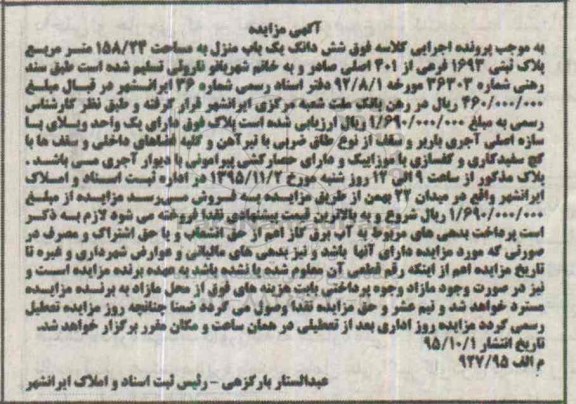 آگهی مزایده
به موجب پرونده اجرایی کلاسه فوق شش دانگ یک باب منزل به مساحت ۱۵۸/۲۴ متر مربع
پلاک ثبتی ۱۶۹۳ فرعی از ۳۰۱ اصلی صادر و به خانم شهربانو ناروئی تسلیم شده است طبق سند
رهنی شماره ۳۶۳۰۳ مورخه ۹۲/۸/۱ دفتر اسناد رسمی شماره ۳۶ ایرانشهر در قبال مبلغ
۴۶۰/۰۰۰/۰۰۰ ریال در رهن بانک ملت شعبه مرکزی ایرانشهر قرار گرفته و طبق نظر کارشناس
رسمی به مبلغ ۱/۶۹۰/۰۰۰/۰۰۰ ریال ارزیابی شده است پلاک فوق دارای یک واحد ویلای با
سازه اصلی آجری باربر و سقف از نوع طاق ضربی با تیرآهن و کلیه فضاهای داخلی و سقف ها با
گچ سفیدکاری و کفسازی با موزاییک و دارای حصارکشی پیرامونی با دیوار آجری می باشد .
پلاک مذکور از ساعت ۹ الی ۱۲ روز شنبه مورخ ۱۳۹۵/۱۱/۲ در اداره ثبت اسناد و املاک
ایرانشهر واقع در میدان ۲۲ بهمن از طریق مزایده به فروش می‌رسد مزایده از مبلغ
۱/۶۹۰/۰۰۰/۰۰۰ ریال شروع و به بالاترین قیمت پیشنهادی نقدا فروخته می شود لازم به ذکر
است پرداخت بدهی های مربوط به آب برق گاز اعم از حق انشعاب و یا حق اشتراک و مصرف در
صورتی که مورد مزایده دارای آنها باشد و نیز بدهی های مالیاتی و عوارض شهرداری و غیره تا
تاریخ مزایده اعم از اینکه رقم قطعی آن معلوم شده یا نشده باشد به عهده برنده مزایده است و
نیز در صورت وجود مازاد وجوه پرداختی بابت هزینه های فوق از محل مازاد به برنده مزایده
مسترد خواهد شد و نیم عشر و حق مزایده نقدا وصول می گردد ضمنا چنانچه روز مزایده تعطیل
رسمی گردد مزایده روز اداری بعد از تعطیلی در همان ساعت و مکان مقرر برگزار خواهد شد.
تاریخ انتشار ۹۵/۱۰/۱
م الف ۹۲۷/۹۵
عبدالستار بارگزهی - رئیس ثبت اسناد و املاک ایرانشهر